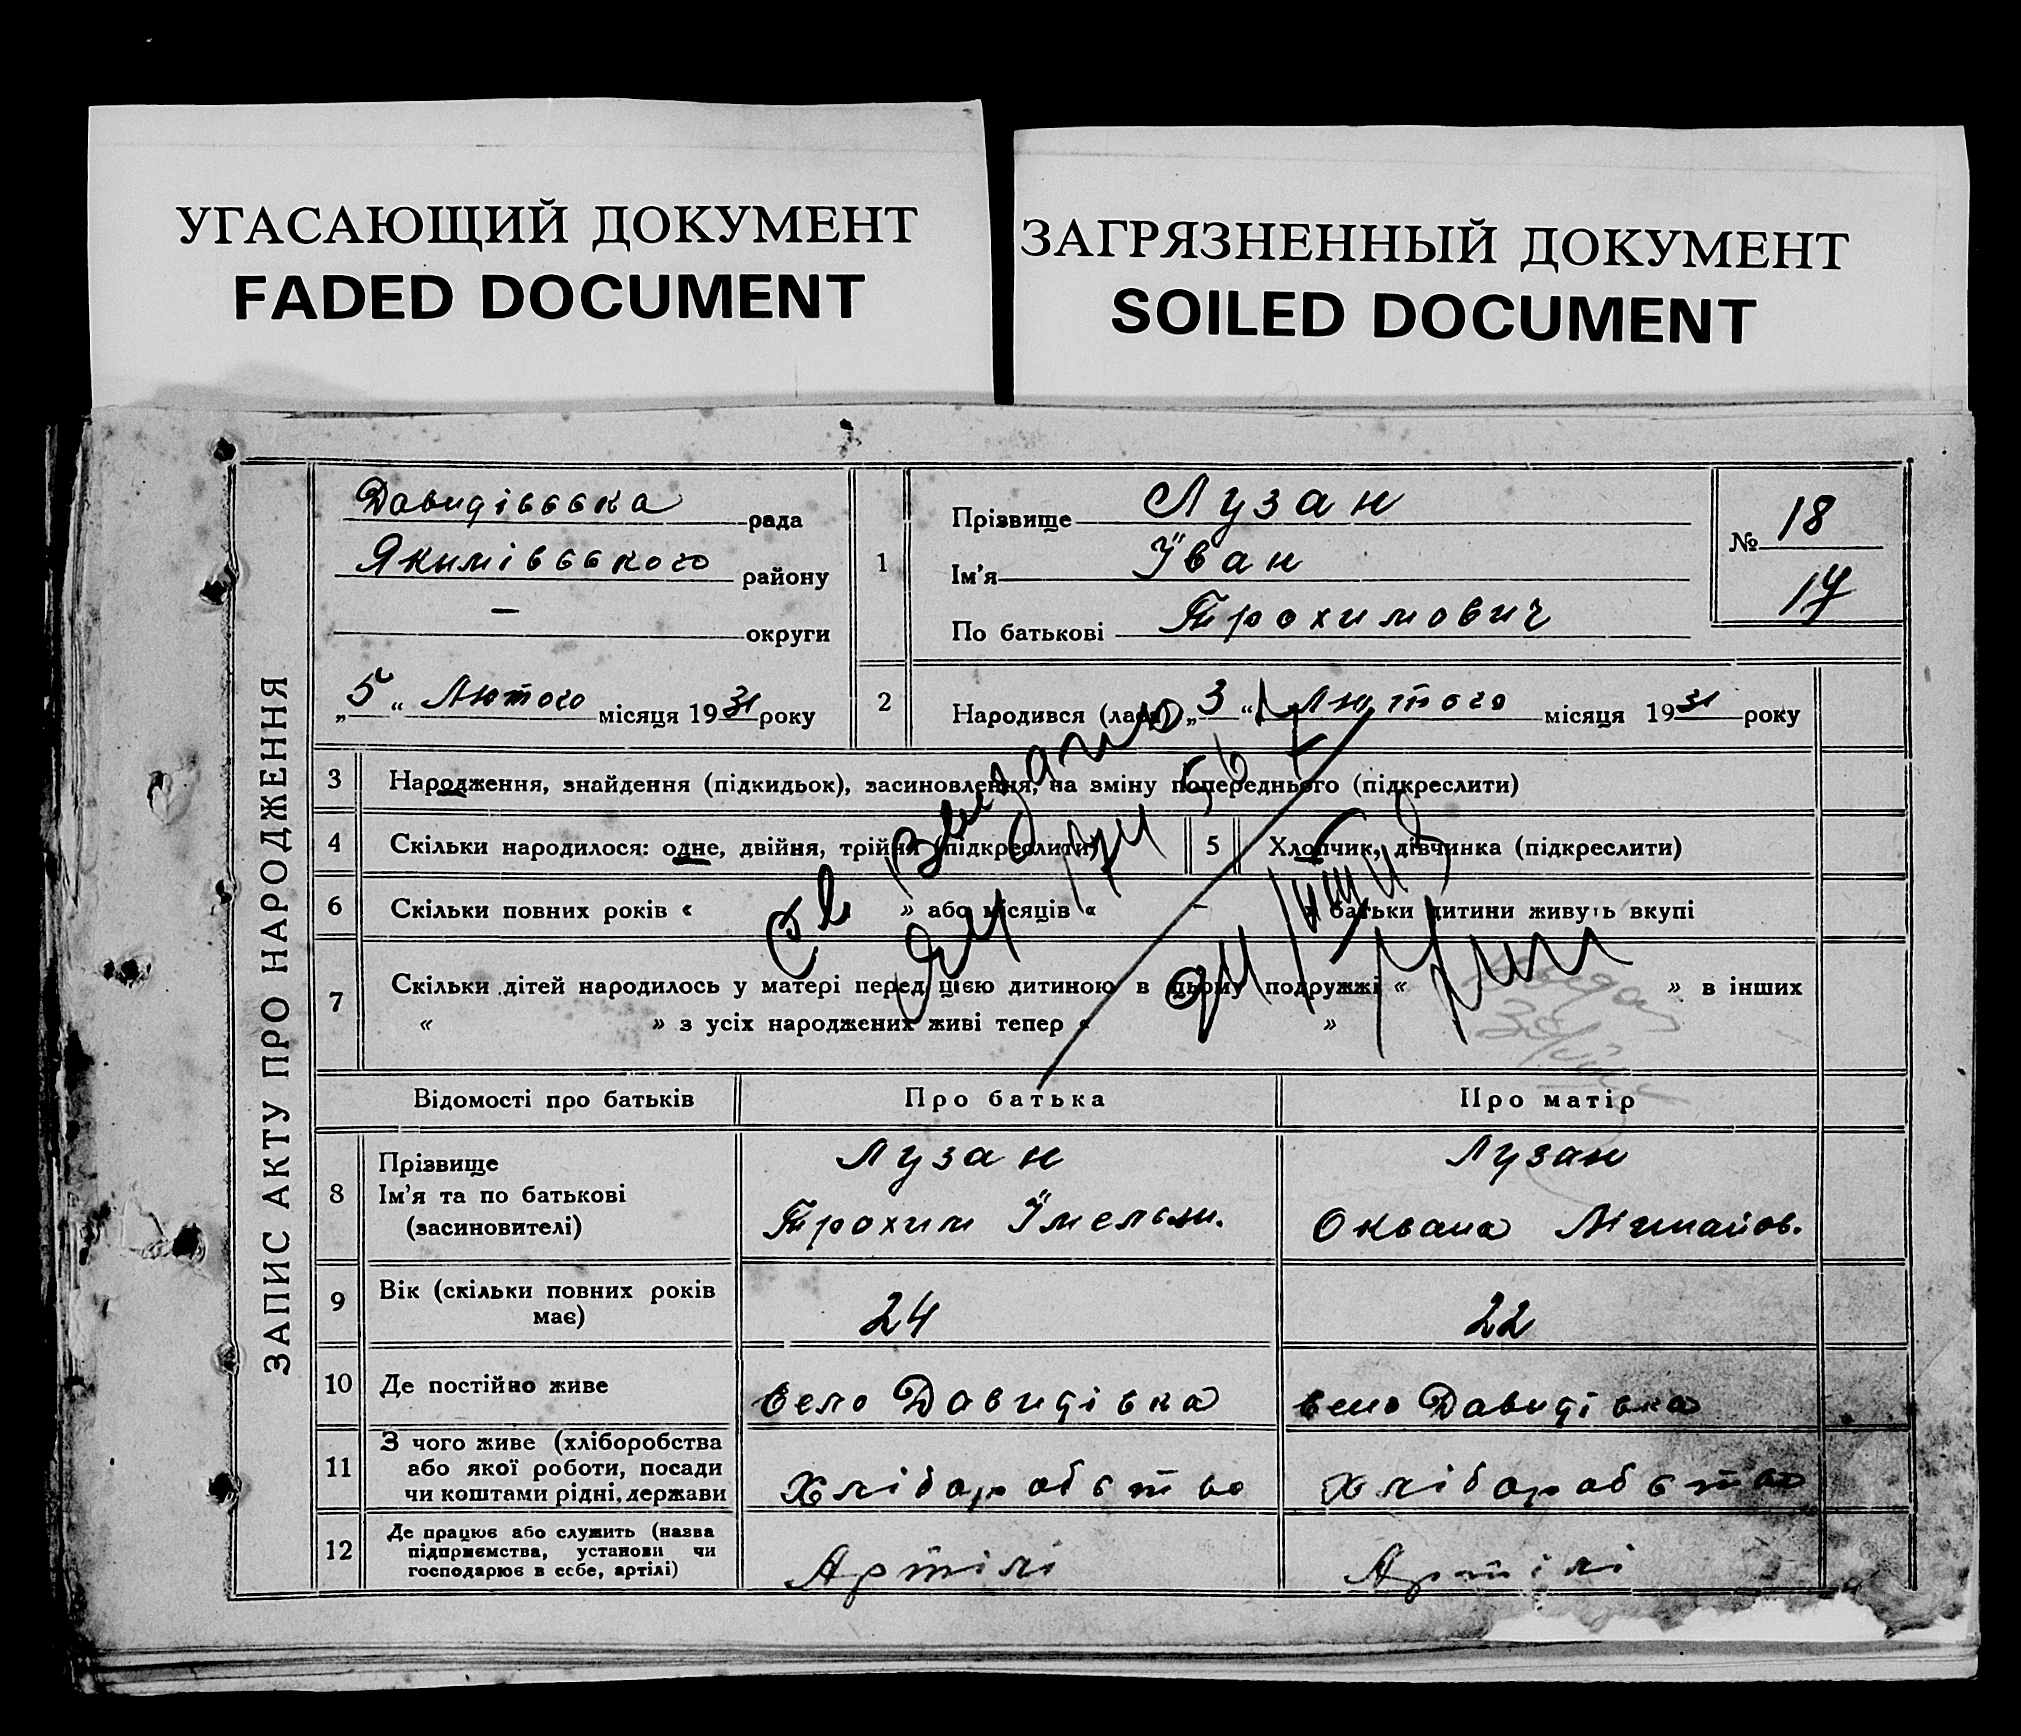 УГАСАЮЩИЙ ДОКУМЕНТ
FADED DOCUMENT
ЗАГРЯЗНЕННЫЙ ДОКУМЕНТ
SOILED DOCUMENT
ЗАПИС АКТУ ПРО НАРОДЖЕННЯ
Давидівська рада
Якимівського району
— округи
„5“ Лютого місяця 1931 року
1
Прізвище Лузан
Ім'я Іван
По батькові Трохимович
№ 18
17
2 Народився (лась) „3“ Лютого місяця 1931 року
3 Народження, знайдення (підкидьок), засиновлення, на зміну попереднього (підкреслити)
4 Скільки народилося: одне, двійня, трійня (підкреслити)
5 Хлопчик, дівчинка (підкреслити)
6 Скільки повних років « » або місяців « – » батьки дитини живуть вкупі
7 Скільки дітей народилось у матері перед цією дитиною в цьому подружжі « » в інших
« » з усіх народжених живі тепер « »
Відомості про батьків Про батька Про матір
8 Прізвище Лузан Лузан
Ім'я та по батькові Трохим Імельян. Оксана Михайов.
(засиновителі)
9 Вік (скільки повних років має) 24 22
10 Де постійно живе село Давидівка село Давидівка
11 З чого живе (хліборобства
або якої роботи, посади
чи коштами рідні, держави Хліборобство Хліборобство
12 Де працює або служить (назва
підприємства, установи чи
господарює в себе, артілі) Артілі Артілі